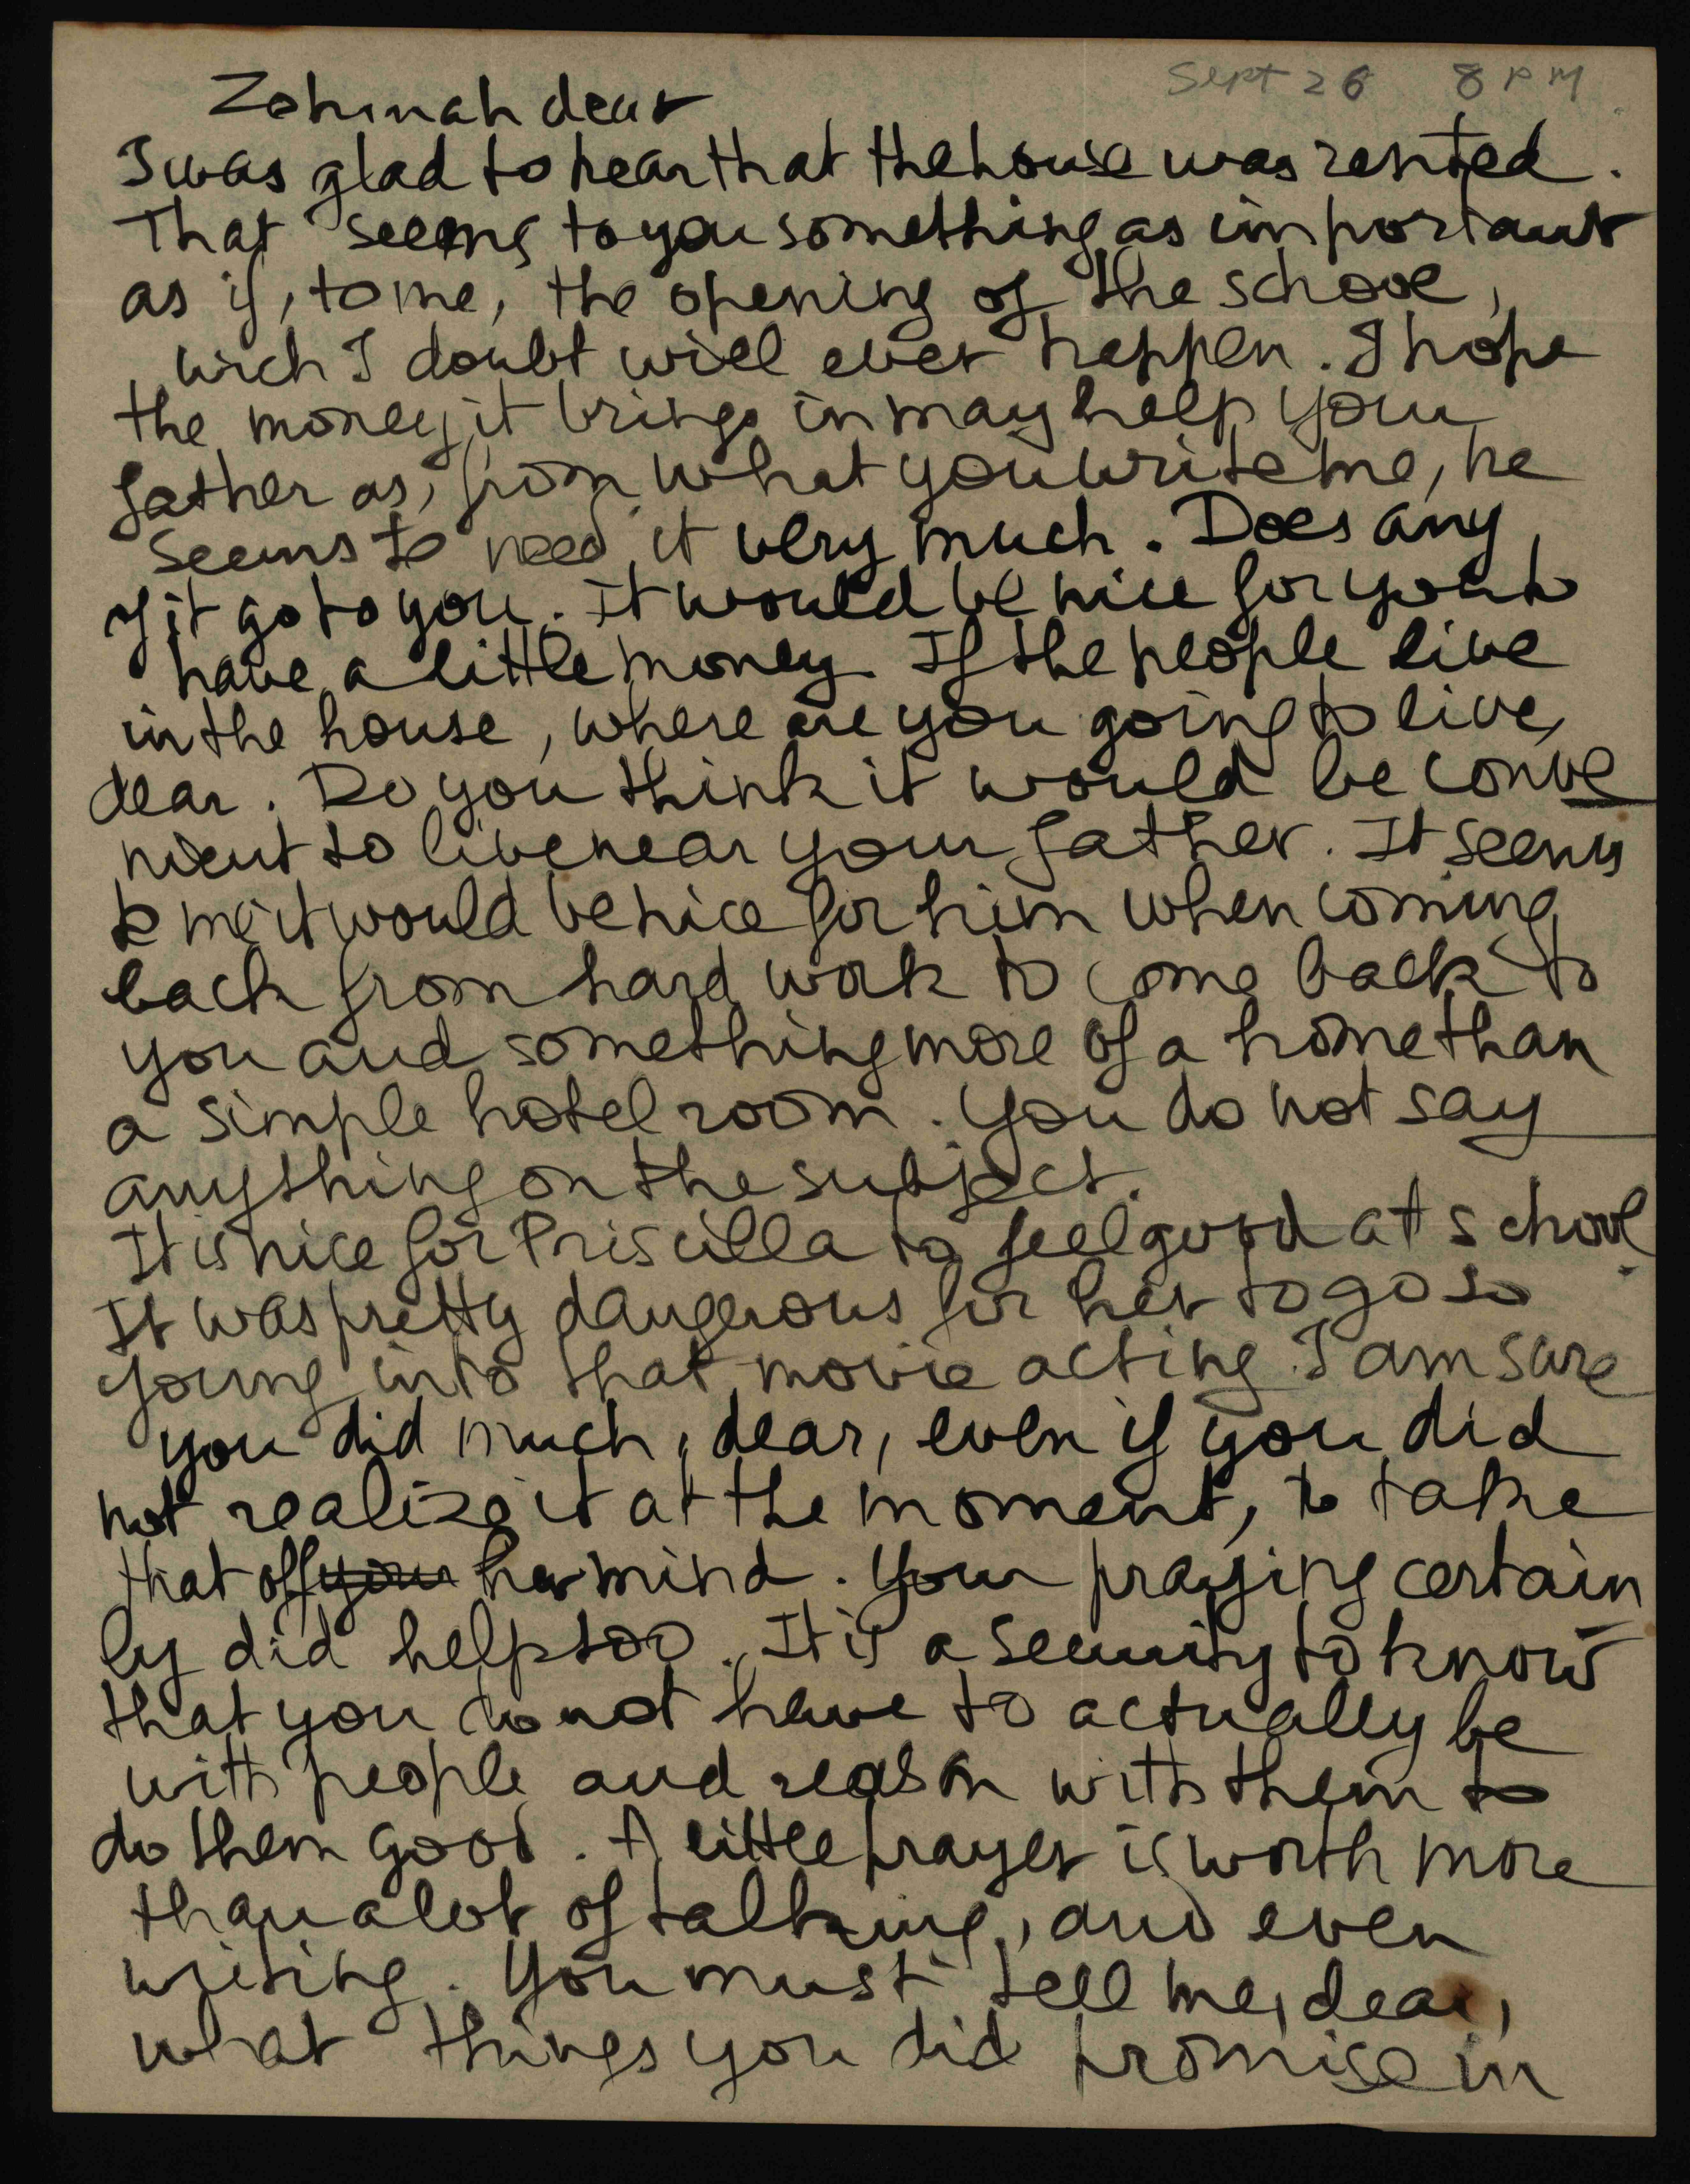 Sept 26 8 PM
Zohmah dear
I was glad to hear that the house was rented.
That seems to you something as important
as if, to me, the opening of the school,
wich I doubt will ever happen. I hope
the money it brings in may help your
father as, from what you write me, he
seems to need it very much. Does any
of it go to you. It would be nice for you to
have a little money. If the people live
in the house, where are you going to live,
dear. Do you think it would be conve
nient to live near your father. It seems
to me it would be nice for him when coming
back from hard work to come back to
you and something more of a home than
a simple hotel room. You do not say
anything on the subject.
It is nice for Priscilla to feel good at school.
It was pretty dangerous for her to go so
young into that movie acting. I am sure
you did much, dear, even if you did
not realize it at the moment, to take
that off your her mind. Your praying certain
ly did help too. It is a security to know
that you do not have to actually be
with people and reason with them to
do them good. A little prayer is worth more
than a lot of talking, and even
writing. You must tell me, dear,
what things you did promise in